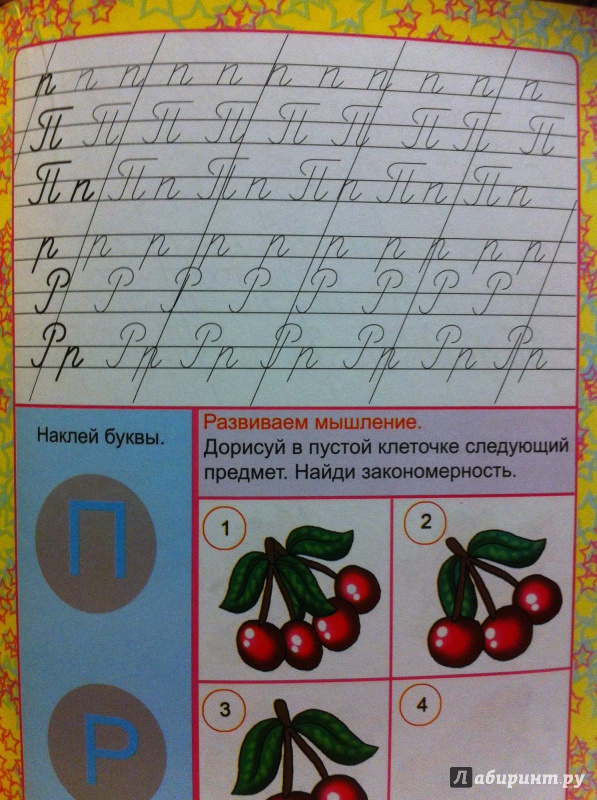 п п п п п п п п п п п
П П П П П П П П П
Пп Пп Пп Пп Пп Пп
р р р р р р р р р р
Р Р Р Р Р Р Р Р
Рр Рр Рр Рр Рр Рр Рр
Наклей буквы.
П
Р
Развиваем мышление.
Дорисуй в пустой клеточке следующий
предмет. Найди закономерность.
1
2
3
4
Лабиринт.ру